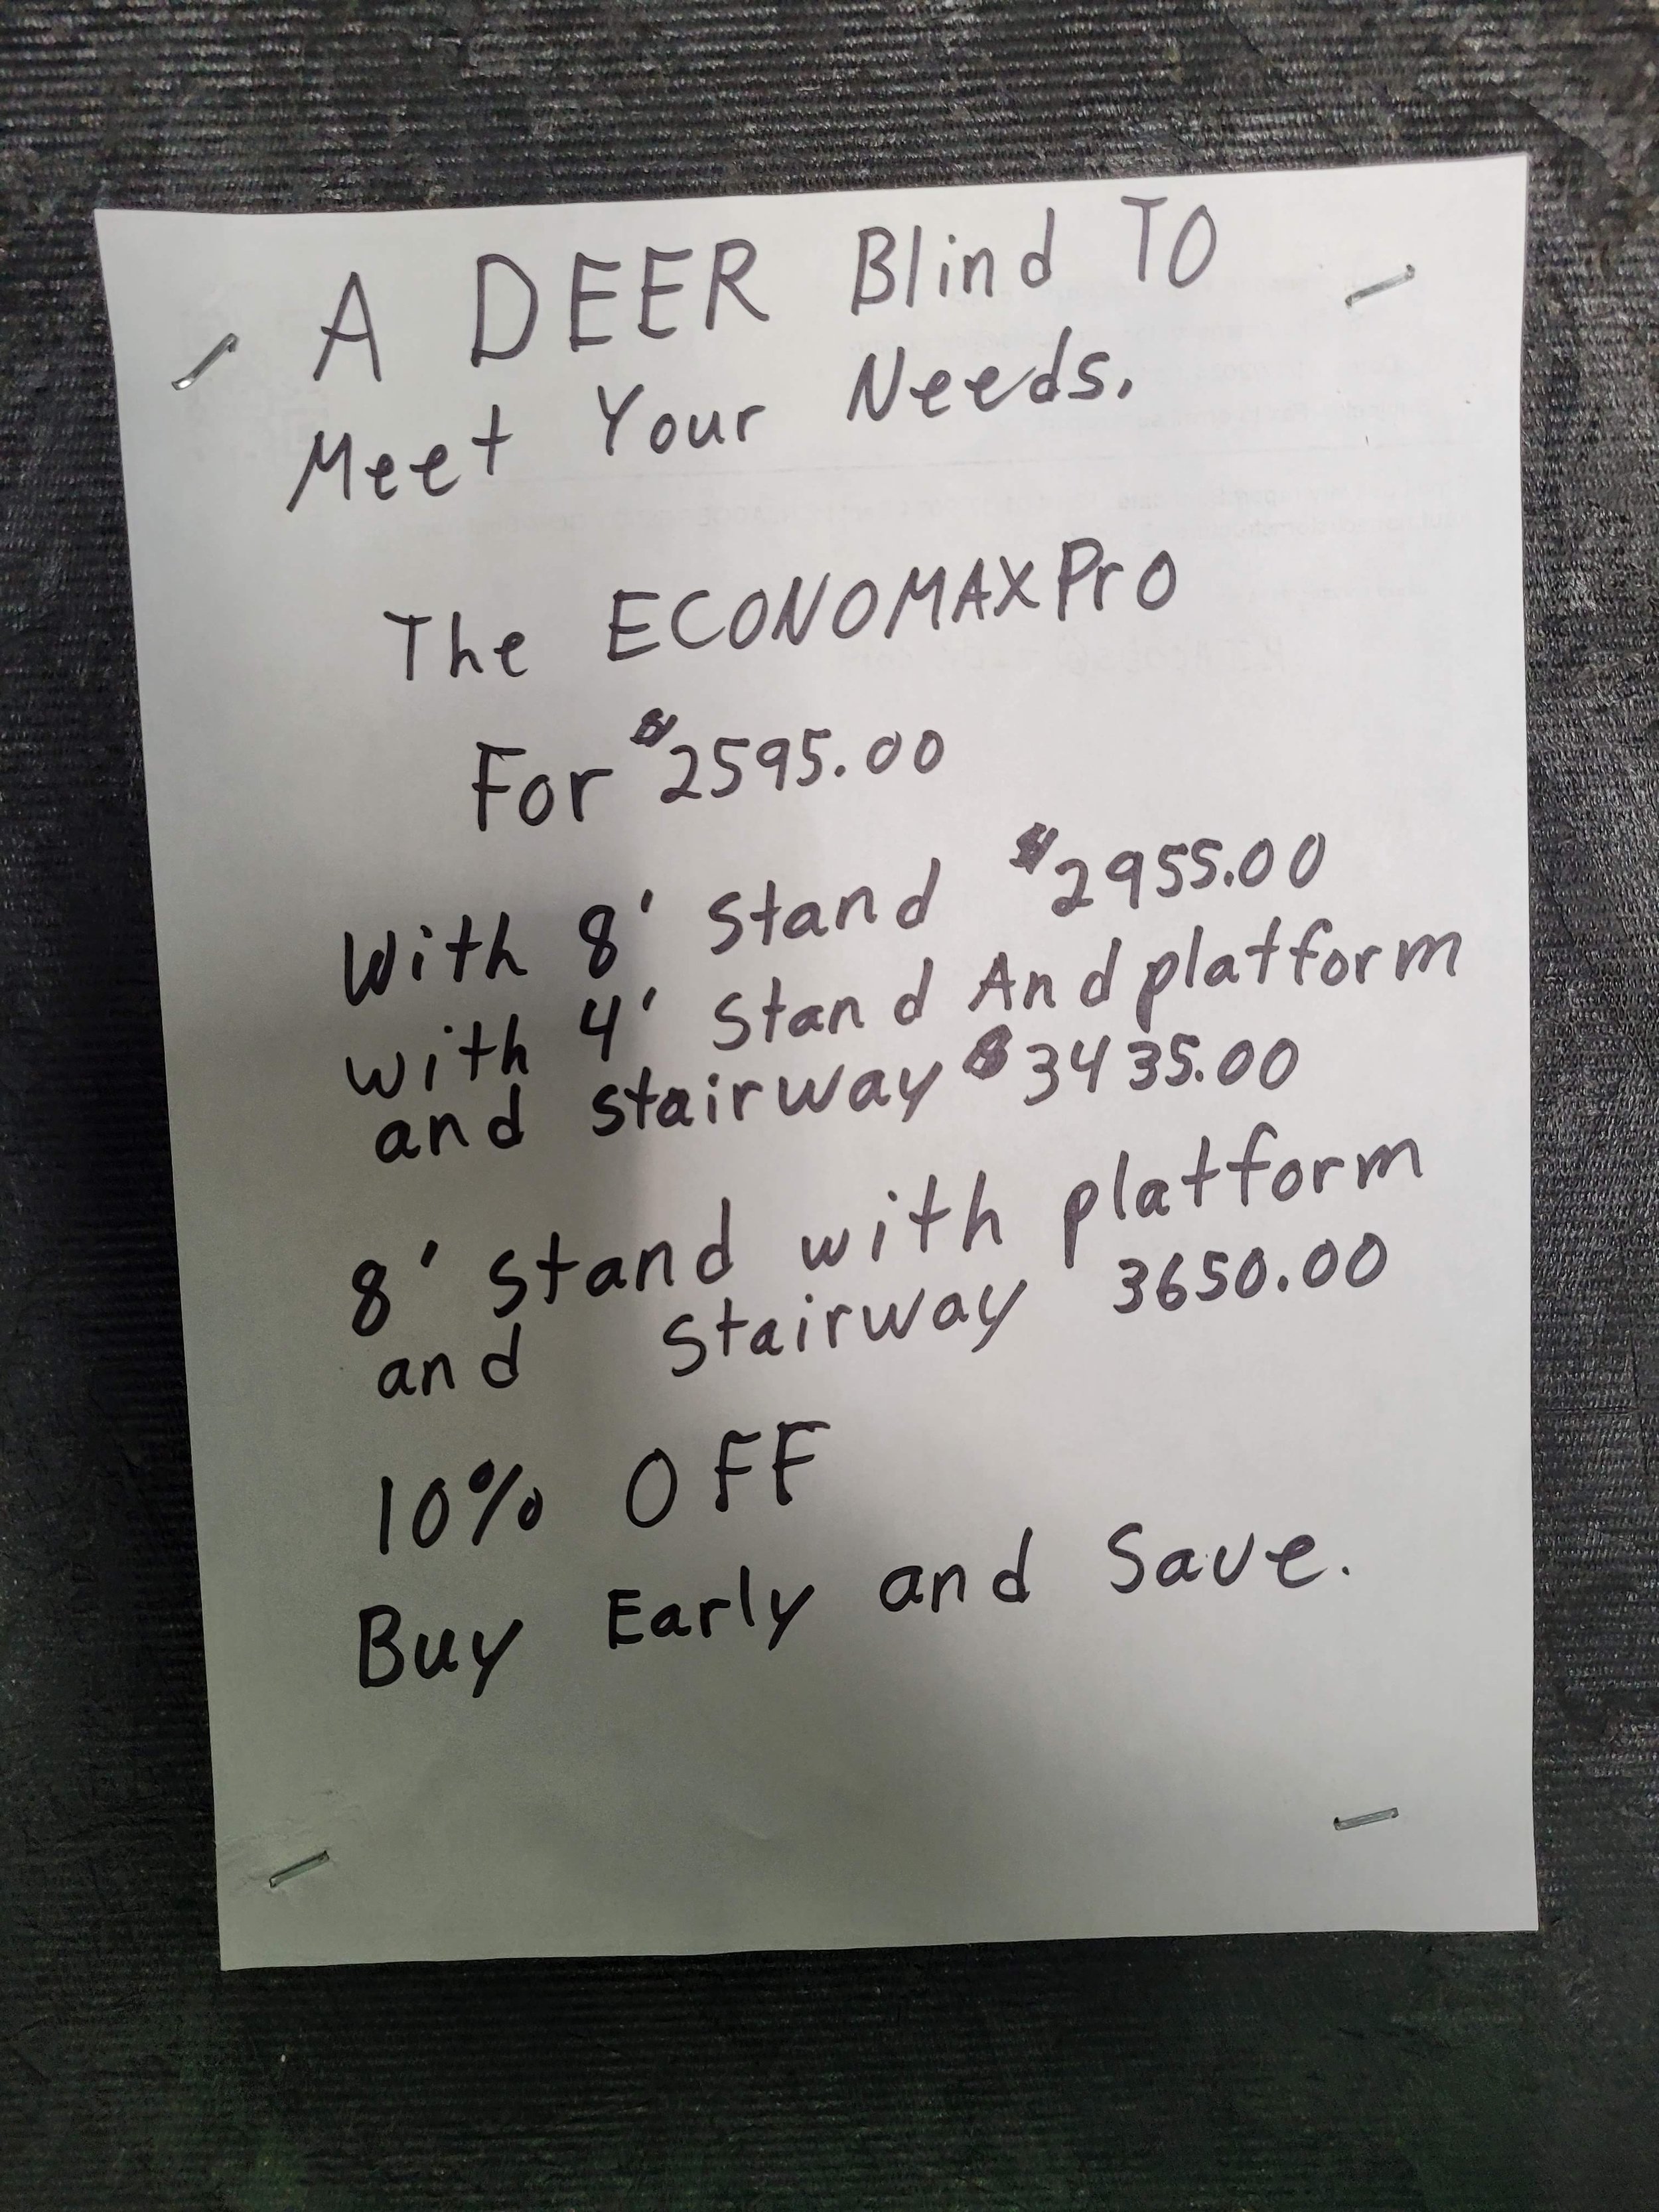 A DEER Blind TO
Meet Your Needs.
The ECONOMAX Pro
For $2595.00
With 8' Stand $2955.00
with 4' Stand And platform
and stairway $3435.00
8' Stand with platform
and Stairway 3650.00
10% OFF
Buy Early and Save.